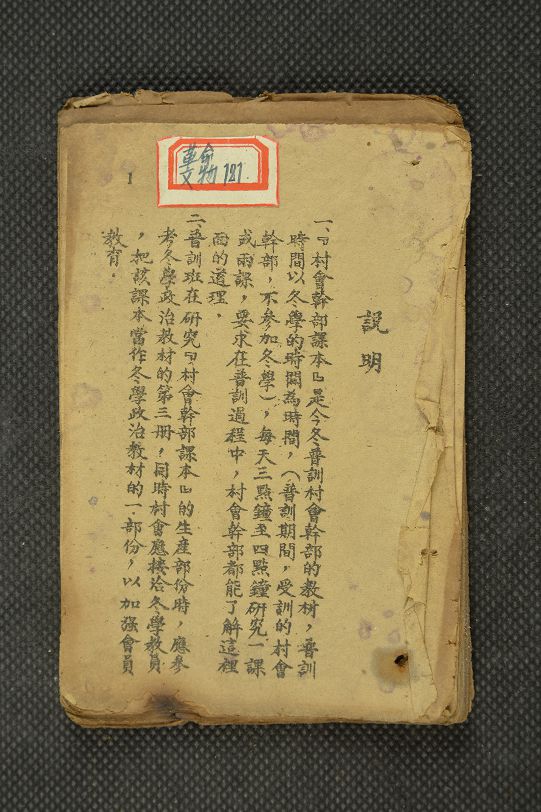 說明
一、『村會幹部課本』是今冬普訓村會幹部的教材，普訓
時間以冬學的時間為時間，（普訓期間，受訓的村會
幹部，不參加冬學），每天三點鐘至四點鐘研究一課
或兩課，要求在普訓過程中，村會幹部都能了解這裡
面的道理，
二、普訓班在研究『村會幹部課本』的生產部份時，應參
考冬學政治教材的第三册，同時村會應接洽冬學教員
，把該課本當作冬學政治教材的一部份，以加强會員
教育。
1
革命
文物 121